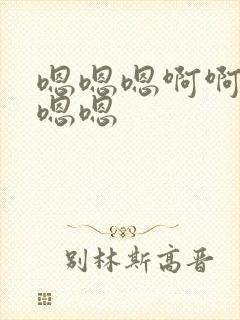 嗯嗯嗯啊啊
嗯嗯
别林斯高晋